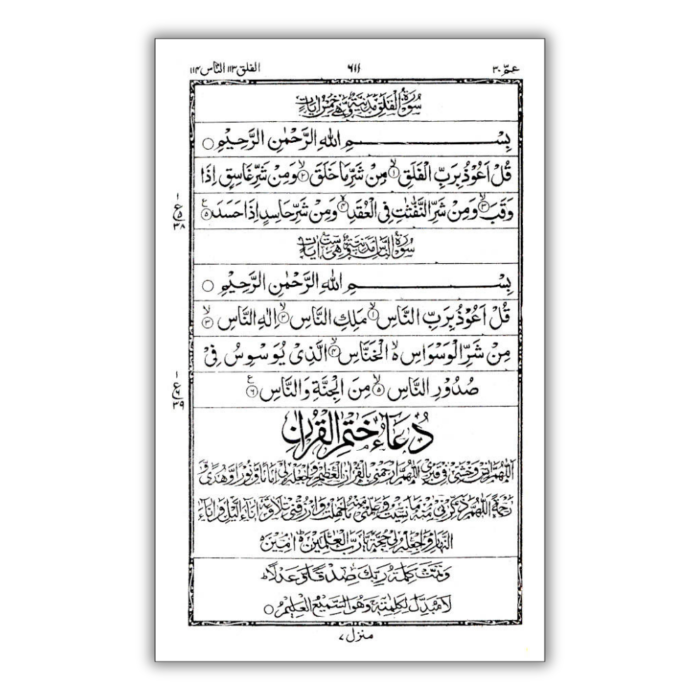 عمّ ٣٠ ٦١١ الفلق ١١٣ الناس ١١٤
سُوْرَةُ الْفَلَقِ مَدَنِيَّةٌ وَّهِيَ خَمْسُ اٰيَاتٍ
بِسْــــــمِ اللّٰهِ الرَّحْمٰنِ الرَّحِيْمِ ○
قُلْ اَعُوْذُ بِرَبِّ الْفَلَقِ ۙ﴿۱﴾ مِنْ شَرِّ مَا خَلَقَ ۙ﴿۲﴾ وَمِنْ شَرِّ غَاسِقٍ اِذَا
وَقَبَ ۙ﴿۳﴾ وَمِنْ شَرِّ النَّفّٰثٰتِ فِي الْعُقَدِ ۙ﴿۴﴾ وَمِنْ شَرِّ حَاسِدٍ اِذَا حَسَدَ ﴿۵﴾ع
ع
٣٨
سُوْرَةُ النَّاسِ مَدَنِيَّةٌ وَّهِيَ سِتُّ اٰيَاتٍ
بِسْــــــمِ اللّٰهِ الرَّحْمٰنِ الرَّحِيْمِ ○
قُلْ اَعُوْذُ بِرَبِّ النَّاسِ ۙ﴿۱﴾ مَلِكِ النَّاسِ ۙ﴿۲﴾ اِلٰهِ النَّاسِ ۙ﴿۳﴾
مِنْ شَرِّ الْوَسْوَاسِ ۵ۙ الْخَنَّاسِ ۙ﴿۴﴾ الَّذِيْ يُوَسْوِسُ فِيْ
صُدُوْرِ النَّاسِ ۙ﴿۵﴾ مِنَ الْجِنَّةِ وَالنَّاسِ ﴿۶﴾ع
ع
٣٩
دُعَآءُ خَتْمِ الْقُرْاٰنِ
اَللّٰهُمَّ اٰنِسْ وَحْشَتِيْ فِيْ قَبْرِيْ اَللّٰهُمَّ ارْحَمْنِيْ بِالْقُرْاٰنِ الْعَظِيْمِ وَاجْعَلْهُ لِيْ اِمَامًا وَّنُوْرًا وَّهُدًى وَّ
رَحْمَةً اَللّٰهُمَّ ذَكِّرْنِيْ مِنْهُ مَا نَسِيْتُ وَعَلِّمْنِيْ مِنْهُ مَا جَهِلْتُ وَارْزُقْنِيْ تِلَاوَتَهٗ اٰنَآءَ الَّيْلِ وَاٰنَآءَ
النَّهَارِ وَاجْعَلْهُ لِيْ حُجَّةً يَّا رَبَّ الْعٰلَمِيْنَ ۵ اٰمِيْنَ ۵
وَتَمَّتْ كَلِمَةُ رَبِّكَ صِدْقًا وَّعَدْلًا ط
لَا مُبَدِّلَ لِكَلِمٰتِهٖ وَهُوَ السَّمِيْعُ الْعَلِيْمُ ○
منزل ٧